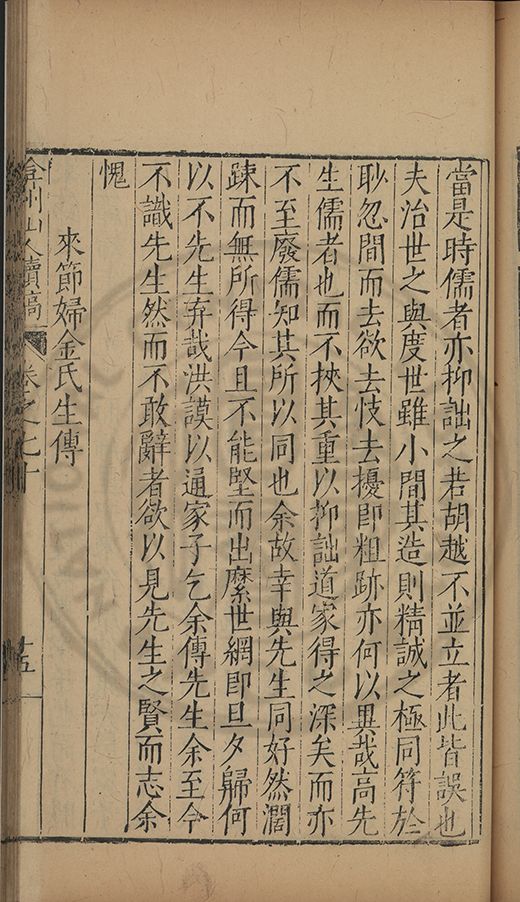 當是時儒者亦抑詘之若胡越不並立者此皆誤也
夫治世之與度世雖小間其造則精誠之極同符於
眇忽間而去欲去忮去擾即粗跡亦何以異哉高先
生儒者也而不挾其重以抑詘道家得之深矣而亦
不至廢儒知其所以同也余故幸與先生同好然濶
踈而無所得今且不能堅而出縻世網即旦夕歸何
以不先生弃哉洪謨以通家子乞余傳先生余至今
不識先生然而不敢辭者欲以見先生之賢而志余
愧
來節婦金氏生傳
弇州山人續稿 卷之七十
十五